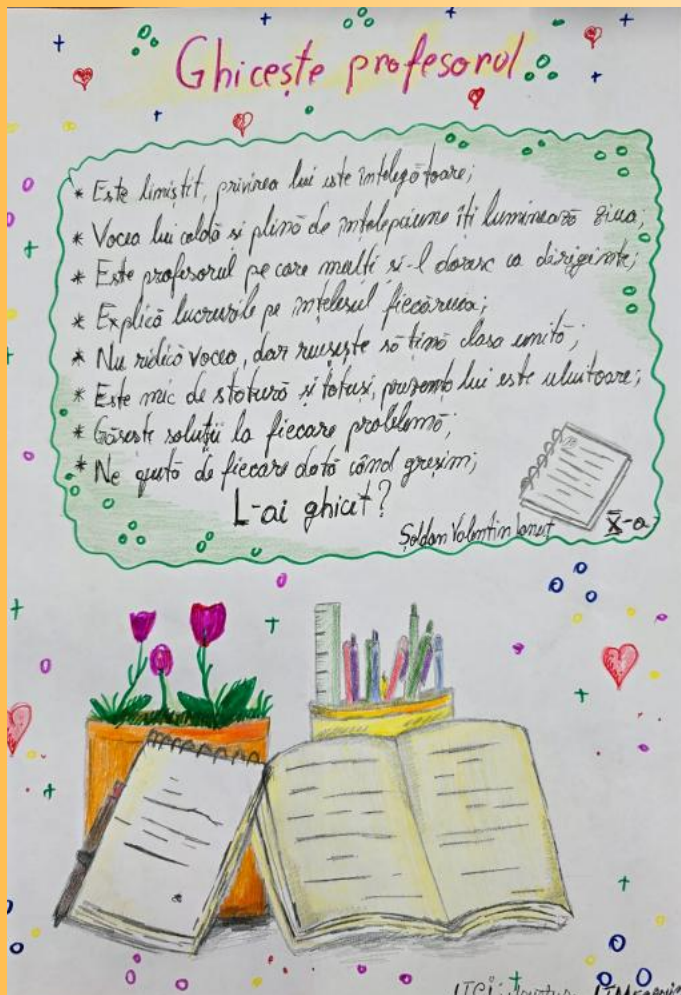 Ghicește profesorul
* Este liniștit, privirea lui este înțelegătoare;
* Vocea lui caldă si plină de înțelepciune îți luminează ziua;
* Este profesorul pe care multi si-l doresc ca diriginte;
* Explică lucrurile pe înțelesul fiecăruia;
* Nu ridică vocea, dar reusește să țină clasa unită;
* Este mic de statură și totusi, prezența lui este uluitoare;
* Găseste soluții la fiecare problemă;
* Ne ajută de fiecare dată când greșim;
L-ai ghicit?
Șoldan Valentin Ionuț X-a